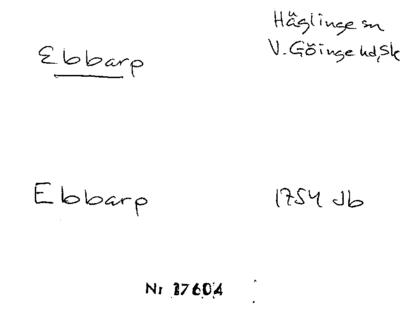 Ebbarp
Häglinge sn
V. Göinge hd, Sk
Ebbarp
1754 Jb
Nr 17604